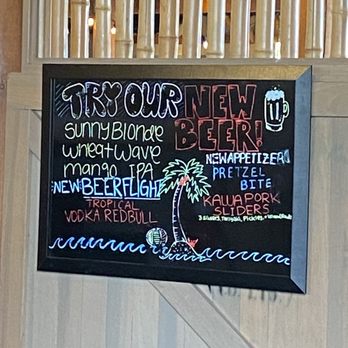 TRY OUR NEW
BEER!
sunny Blonde
wheat wave
mango IPA
NEW BEER FLIGHT
TROPICAL
VODKA REDBULL
NEW APPETIZER
PRETZEL
BITE
KAWA PORK
SLIDERS
3 Sliders, Teriyaki, Pickles